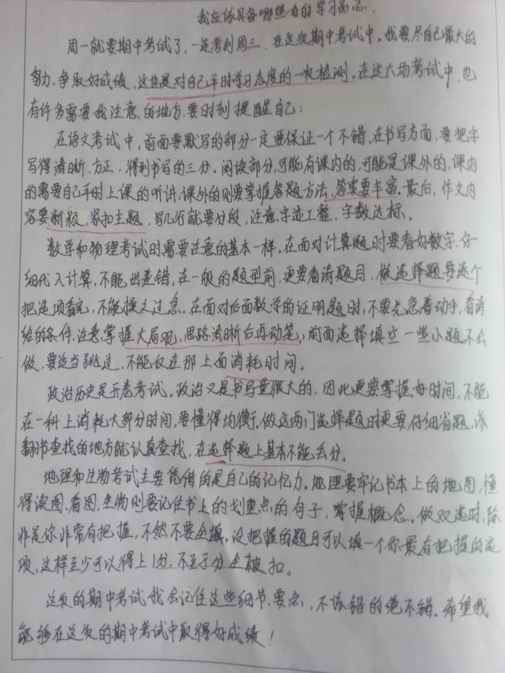 我应该具备哪些良好的学习品质
周一就要期中考试了,一起考到周三。在这次期中考试中,我要尽自己最大的
努力,争取好成绩,这也是对自己平时学习态度的一次检测。在这大场考试中,也
有许多需要我注意的地方,要时刻提醒自己:
在语文考试中,前面要默写的部分一定要保证一个不错,在书写方面,要把字
写得清晰、方正,得到书写的三分。阅读部分,可能有课内的,可能是课外的,课内
的需要自己平时上课的听讲,课外的则要掌握答题方法,答案要丰富。最后,作文内
容要新颖,紧扣主题,写几行就要分段,注意字迹工整,字数达标。
数学和物理考试时需要注意的基本一样,在面对计算题时要看好数字,仔
细代入计算,不能出差错,在一般的题型前,更要看清题目,做选择题要逐个
把选项看完,不能操之过急。在面对后面数学的证明题时,不要先急着动手,看清
给的条件,注意掌握大局观,思路清晰后再动笔,前面选择填空一些小题不会
做,要适当跳过,不能仅在那上面消耗时间。
政治历史是开卷考试。政治又是书写量很大的,因此更要掌握每时间,不能
在一科上消耗大部分时间,要懂得均衡,做这两门选择题时更要仔细省题,该
翻书查找的地方就认真查找,在选择题上基本不能丢分。
地理和生物考试主要凭借的是自己的记忆力。地理要牢记书本上的地图,懂
得读图、看图,生物则要记住书上的划重点的句子,掌握概念。做双选时,除
非是你非常有把握,不然不要全填,没把握的题目可以填一个你最有把握的选
项,这样至少可以得上1分,不至于分全被扣。
这次的期中考试我会记住这些细节、要点,不该错的绝不错。希望我
能够在这次的期中考试中取得好成绩!